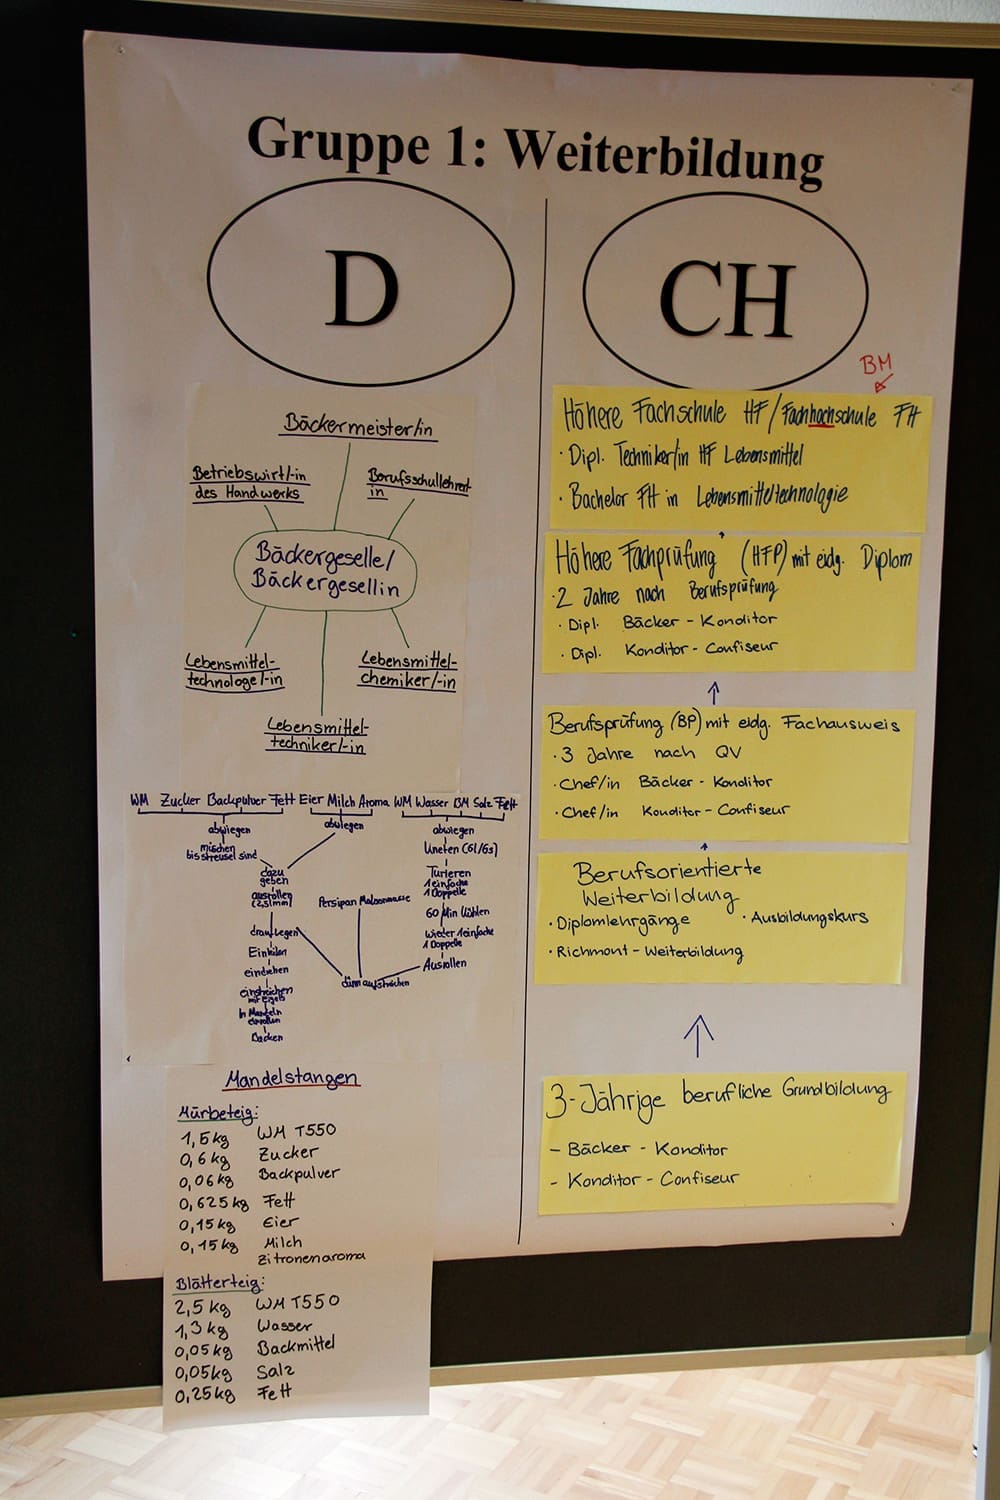 Gruppe 1: Weiterbildung
D
Bäckermeister/in
Betriebswirt/-in
des Handwerks
Berufsschullehrer/-
in
Bäckergeselle/
Bäckergesellin
Lebensmittel-
technologe/-in
Lebensmittel-
chemiker/-in
Lebensmittel-
techniker/-in
WM Zucker Backpulver Fett Eier Milch Aroma WM Wasser BM Salz Fett
abwiegen
mischen
bis streusel sind
abwiegen
dazu
geben
ausrollen
(2,5mm)
drauflegen
Einholen
eindrehen
einstreichen
mit eigelb
In Mandeln
Backen
Persipan
dünn aufstreichen
abwiegen
Kneten (6l/6s)
Turieren
1 einfache
1 Doppelte
60 Min Kühlen
wieder 1 einfache
1 Doppelte
Ausrollen
Mandelstangen
Mürbeteig:
1,5kg WM T550
0,6kg Zucker
0,06kg Backpulver
0,625kg Fett
0,15kg Eier
0,15kg Milch
Zitronenaroma
Blätterteig:
2,5kg WM T550
1,3kg Wasser
0,05kg Backmittel
0,05kg Salz
0,25kg Fett
CH
BM
Höhere Fachschule HF/Fachhochschule FH
· Dipl. Techniker/in HF Lebensmittel
· Bachelor FH in Lebensmitteltechnologie
Höhere Fachprüfung (HFP) mit eidg. Diplom
· 2 Jahre nach Berufsprüfung
· Dipl. Bäcker - Konditor
· Dipl. Konditor - Confiseur
Berufsprüfung (BP) mit eidg. Fachausweis
· 3 Jahre nach QV
· Chef/in Bäcker - Konditor
· Chef/in Konditor - Confiseur
Berufsorientierte
Weiterbildung
· Diplomlehrgänge · Ausbildungskurs
· Richmont - Weiterbildung
3-Jährige berufliche Grundbildung
- Bäcker - Konditor
- Konditor - Confiseur